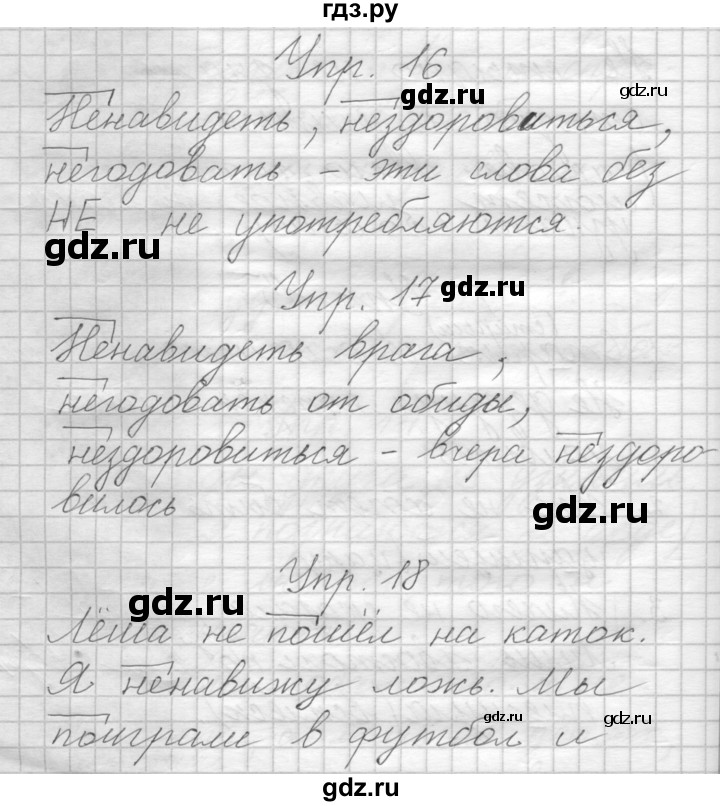 гдз.ру
Упр. 16
gdz.ru
gdz.ru
Ненавидеть, нездоровиться,
негодовать – эти слова без
НЕ не употребляются.
gdz.ru
Упр. 17
gdz.ru
Ненавидеть врага,
негодовать от обиды,
нездоровиться – вчера нездоро-
вилось
gdz.ru
Упр. 18
gdz.ru
Лёша не пошёл на каток.
Я ненавижу ложь. Мы
поиграли в футбол и
gdz.ru
gdz.ru
gdz.ru